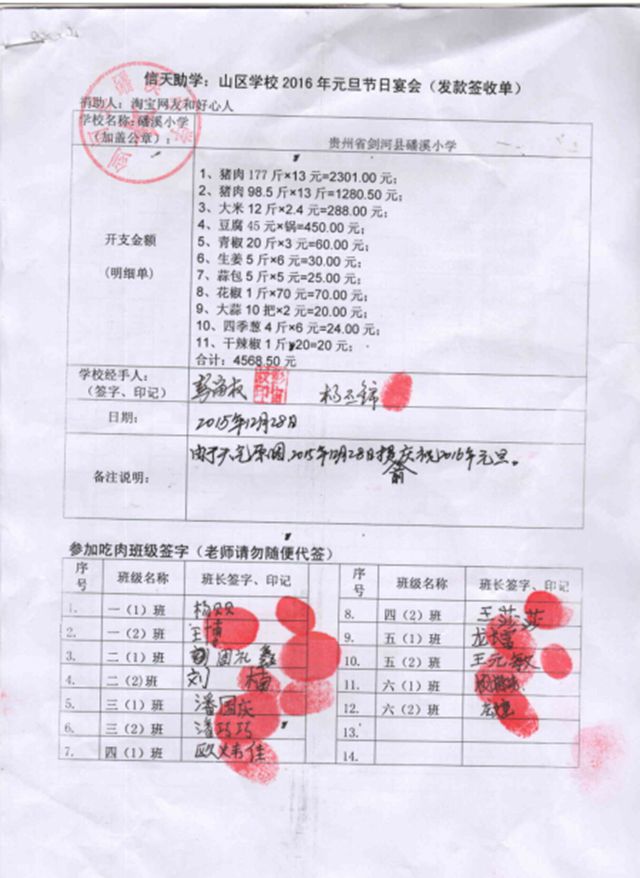 信天助学：山区学校 2016 年元旦节日宴会（发款签收单）
捐助人：淘宝网友和好心人
学校名称：磻溪小学
（加盖公章）：
贵州省剑河县磻溪小学
开支金额
(明细单)
1、猪肉 177 斤×13 元=2301.00 元；
2、猪肉 98.5 斤×13 斤=1280.50 元；
3、大米 12 斤×2.4 元=288.00 元；
4、豆腐 45 元×锅=450.00 元；
5、青椒 20 斤×3 元=60.00 元；
6、生姜 5 斤×6 元=30.00 元；
7、蒜包 5 斤×5 元=25.00 元；
8、花椒 1 斤×70 元=70.00 元；
9、大蒜 10 把×2 元=20.00 元；
10、四季葱 4 斤×6 元=24.00 元；
11、干辣椒 1 斤 20=20 元；
合计：4568.50 元
学校经手人：
（签字、印记）
日期：
2015年12月28日
备注说明：
由于天气原因,2015年12月28日提前庆祝2016年元旦。
参加吃肉班级签字（老师请勿随便代签）
序号 班级名称 班长签字、印记
1. 一（1）班
2. 一（2）班 王博
3. 二（1）班 周礼鑫
4. 二（2）班 刘
5. 三（1）班 潘国庆
6. 三（2）班 潘巧巧
7. 四（1）班 佳
序号 班级名称 班长签字、印记
8. 四（2）班 王莎莎
9. 五（1）班
10. 五（2）班 王元敏
11. 六（1）班
12. 六（2）班
13.
14.